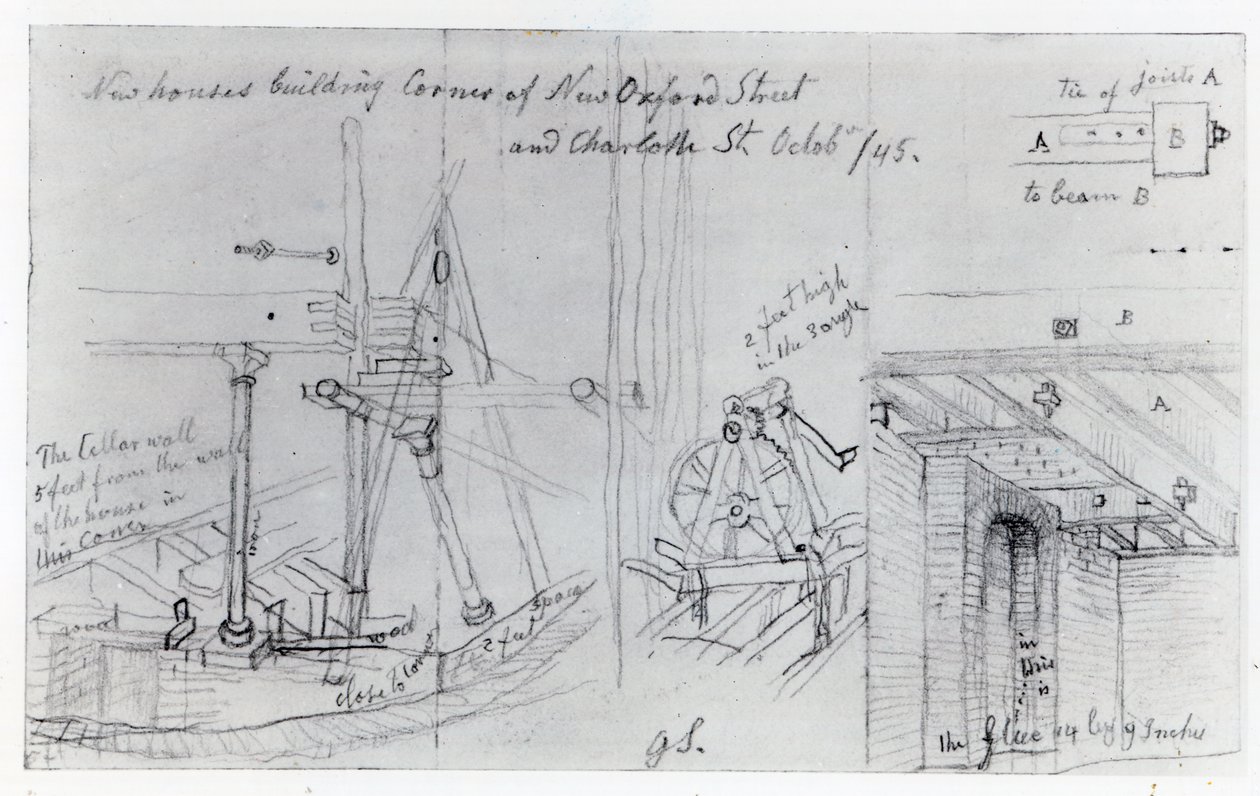 New houses building Corner of New Oxford Street
and Charlotte St. Octobr /45.
tie of joists A
A
B
to beam B
B
A
2 feet high
in the 3 angle
The Cellar wall
5 feet from the wall
of the house in
this Corner
iron
wood
wood
close to corner
2 feet space
in
is
the flue 14 by 9 Inches
GS.